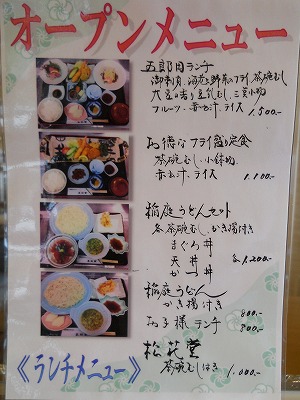 オープンメニュー
五郎目ランチ
御刺身、海老と野菜のフライ、茶碗むし
フルーツ・赤出汁、ライス
1,500-
お得なフライ盛り定食
茶碗むし、小鉢物、
赤出汁、ライス
1,100-
稲庭うどんセット
各茶碗むし、かき揚付き
まぐろ丼
天丼 各1,200-
かつ丼
稲庭うどん
かき揚付き 800-
お子様ランチ 800-
松花堂
茶碗むし付き 1,000-
《ランチメニュー》